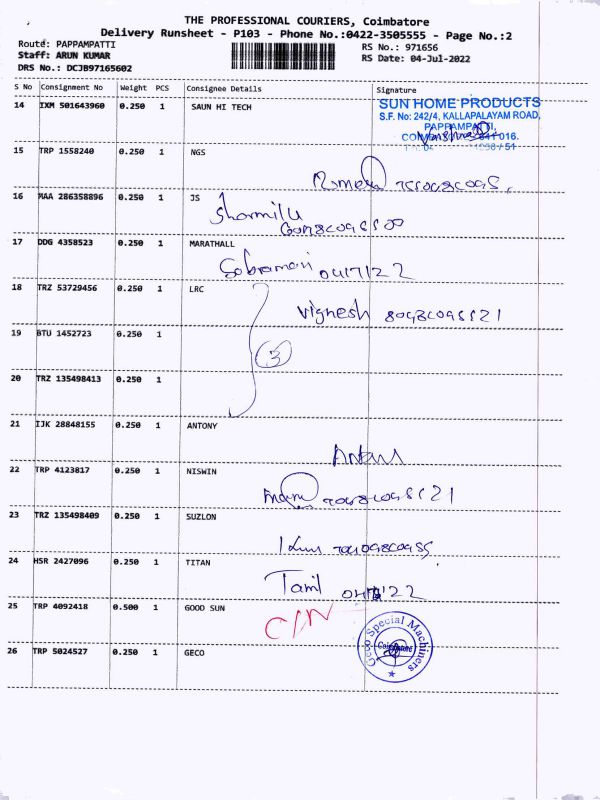 THE PROFESSIONAL COURIERS, Coimbatore
Delivery Runsheet - P103 - Phone No.:0422-3505555 - Page No.:2
Route: PAPPAMPATTI
Staff: ARUN KUMAR
DRS No.: DCJB97165602
RS No.: 971656
RS Date: 04-Jul-2022
S No Consignment No Weight PCS Consignee Details Signature
14 IXM 501643960 0.250 1 SAUN HI TECH
SUN HOME PRODUCTS
S.F. No: 242/4, KALLAPALAYAM ROAD,
PAPPAMPATTI,
15 TRP 1558240 0.250 1 NGS
16 MAA 286358896 0.250 1 JS
Sharmila
17 DDG 4358523 0.250 1 MARATHALL
Sobramani 04/7/22
18 TRZ 53729456 0.250 1 LRC
Vignesh
19 BTU 1452723 0.250 1
3
20 TRZ 135498413 0.250 1
21 IJK 28848155 0.250 1 ANTONY
22 TRP 4123817 0.250 1 NISWIN
23 TRZ 135498409 0.250 1 SUZLON
24 HSR 2427096 0.250 1 TITAN
Tamil
25 TRP 4092418 0.500 1 GOOD SUN
C/N
26 TRP 5024527 0.250 1 GECO
Geco Special Machiners
Coimbatore